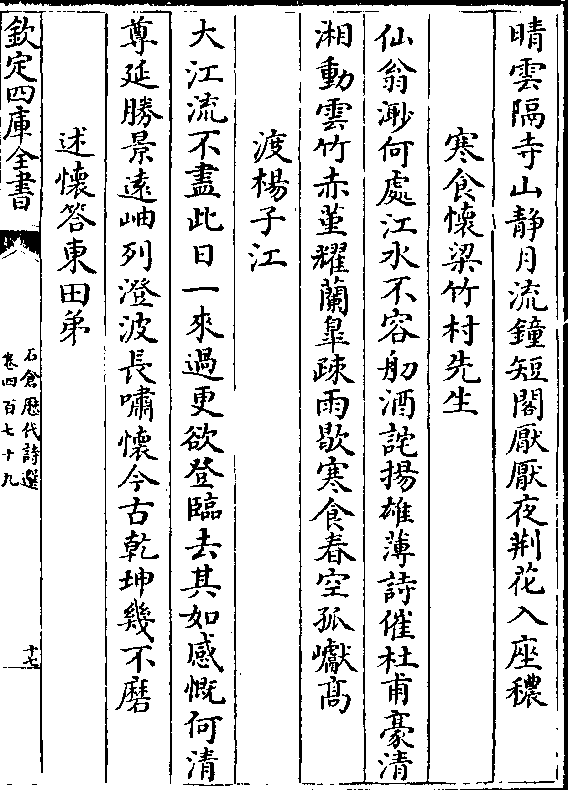 晴雲隔寺山靜月流鐘短閣厭厭夜荆花入座穠
寒食懷梁竹村先生
仙翁渺何處江水不容舠酒詫揚雄薄詩催杜甫豪清
湘動雲竹赤堇耀蘭臯疎雨歇寒食春空孤巘髙
渡楊子江
大江流不盡此日一來過更欲登臨去其如感慨何清
尊延勝景遠岫列澄波長嘯懷今古乾坤幾不磨
述懷答東田弟
欽定四庫全書
石倉歷代詩選
卷四百七十九
十七